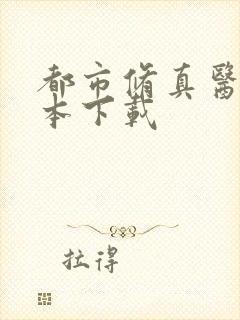 都市脩真醫
本下載
拉得